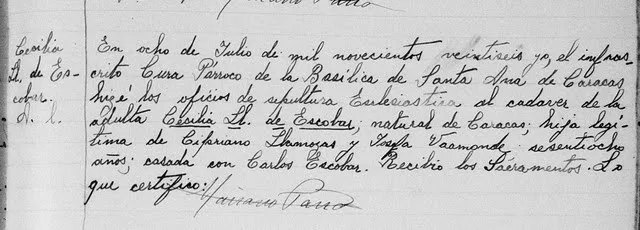 Cecilia
Ll. de Es-
cobar.
A. l.
En ocho de Julio de mil novecientos veintiseis yo, el infras-
crito Cura Párroco de la Basílica de Santa Ana de Caracas
hizé los oficios de sepultura Eclesiastica al cadaver de la
adulta Cecilia Ll. de Escobar; natural de Caracas; hija legí-
tima de Cipriano Llamozas y Josefa Vaamonde sesentiocho
años; casada con Carlos Escobar. Recibio los Sacramentos. Lo
que certifico:
Mariano Parra